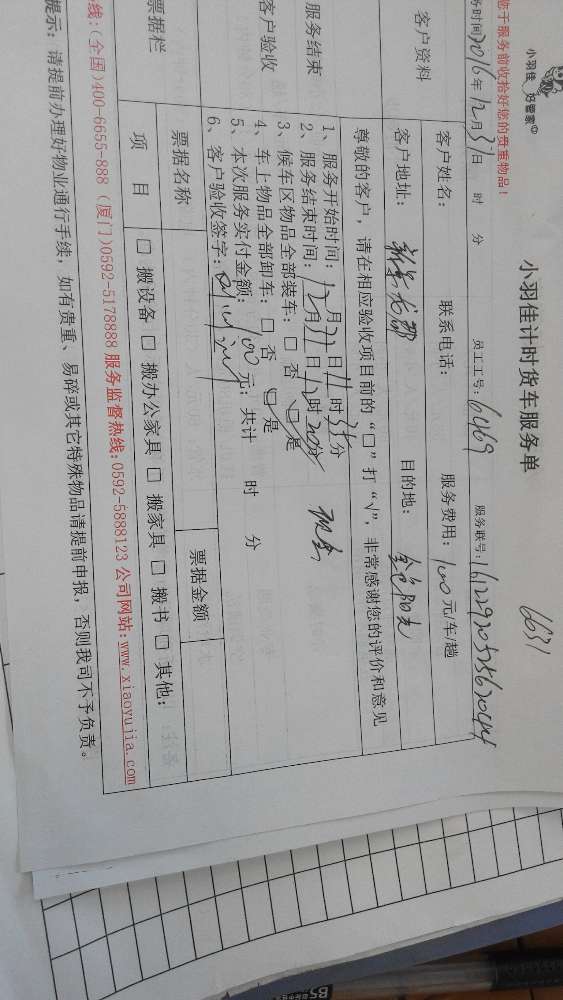 小羽佳 好管家
6631
小羽佳计时货车服务单
您于服务前收拾好您的贵重物品！
务时间2016年12月31日 时 分 员工工号：6469 服务联号：
客户资料
客户姓名： 联系电话： 服务费用：100元/车/趟
客户地址： 目的地：
尊敬的客户，请在相应验收项目前的“□”打“√”，非常感谢您的评价和意见
服务结束
客户验收
1、服务开始时间：12月31日11时35分
2、服务结束时间：12月31日12时20分
3、候车区物品全部装车：□否 □是
4、车上物品全部卸车：□否 □是
5、本次服务实付金额：100元；共计 时 分
6、客户验收签字：
票据栏
票据名称 票据金额
项目 □搬设备 □搬办公家具 □搬家具 □搬书 □其他：
线：(全国)400-6655-888 (厦门)0592-5178888 服务监督热线:0592-5888123 公司网站:www.xiaoyujia.com
提示：请提前办理好物业通行手续，如有贵重、易碎或其它特殊物品请提前申报，否则我司不予负责。